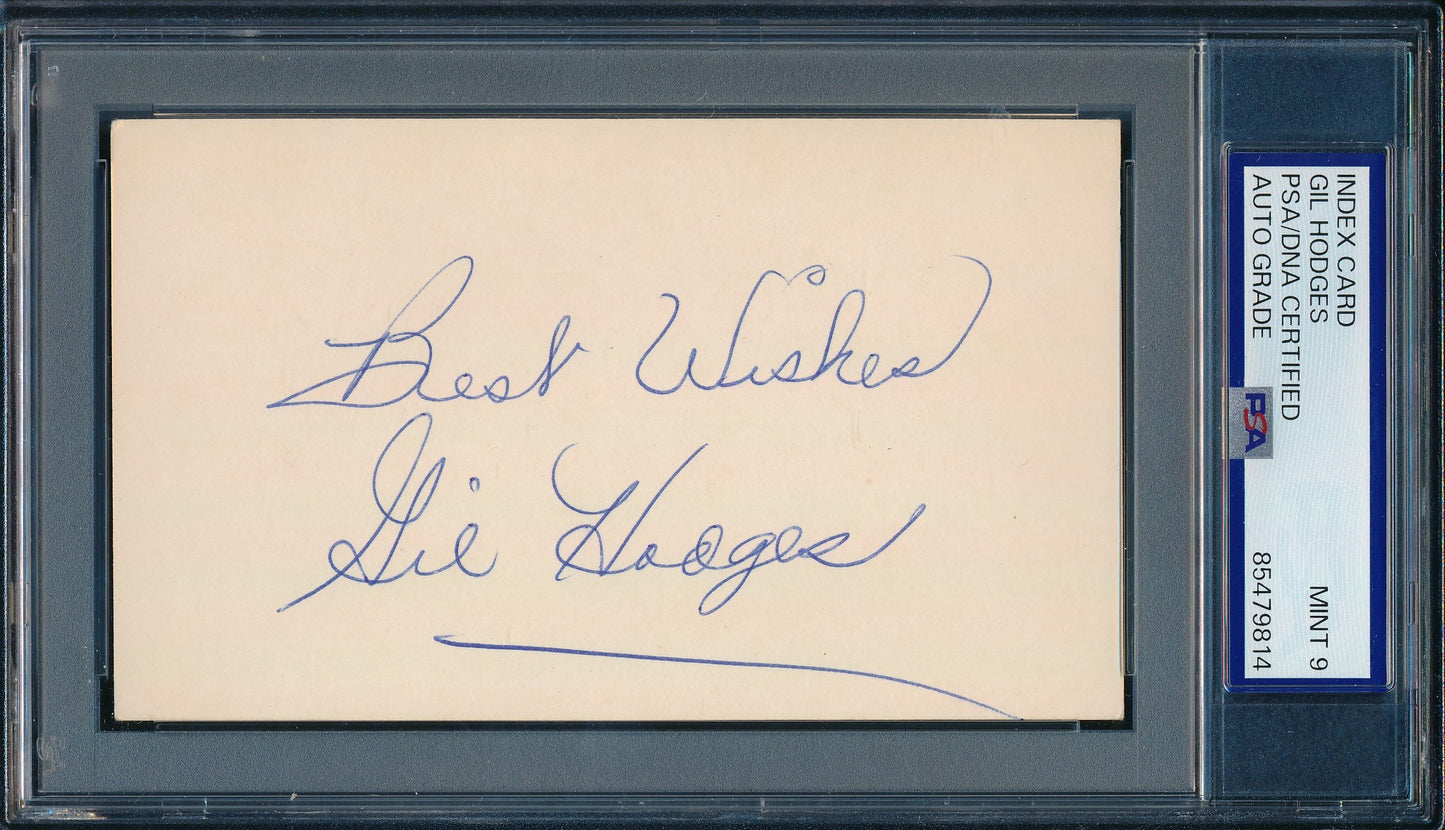 Best Wishes
Gil Hodges
INDEX CARD
GIL HODGES
PSA/DNA CERTIFIED
AUTO GRADE
MINT 9
85479814
PSA